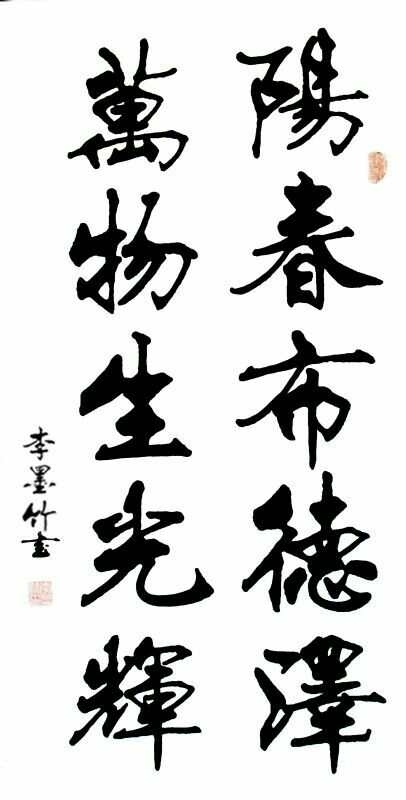 陽春布德澤
萬物生光輝
李墨竹書